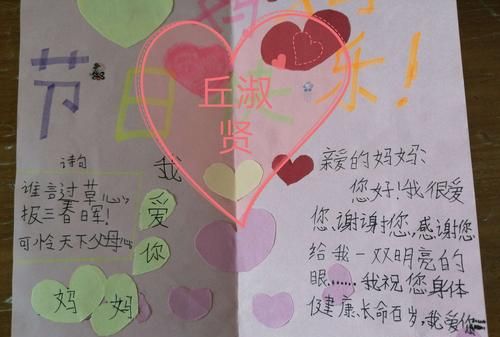 妈妈
节日快乐!
丘淑贤
诗句
谁言寸草心,
报三春晖!
可怜天下父母心
我
爱
你
妈 妈
亲爱的妈妈:
您好!我很爱
您,谢谢您,感谢您
给我一双明亮的
眼……我祝您身体
健康,长命百岁,我爱您